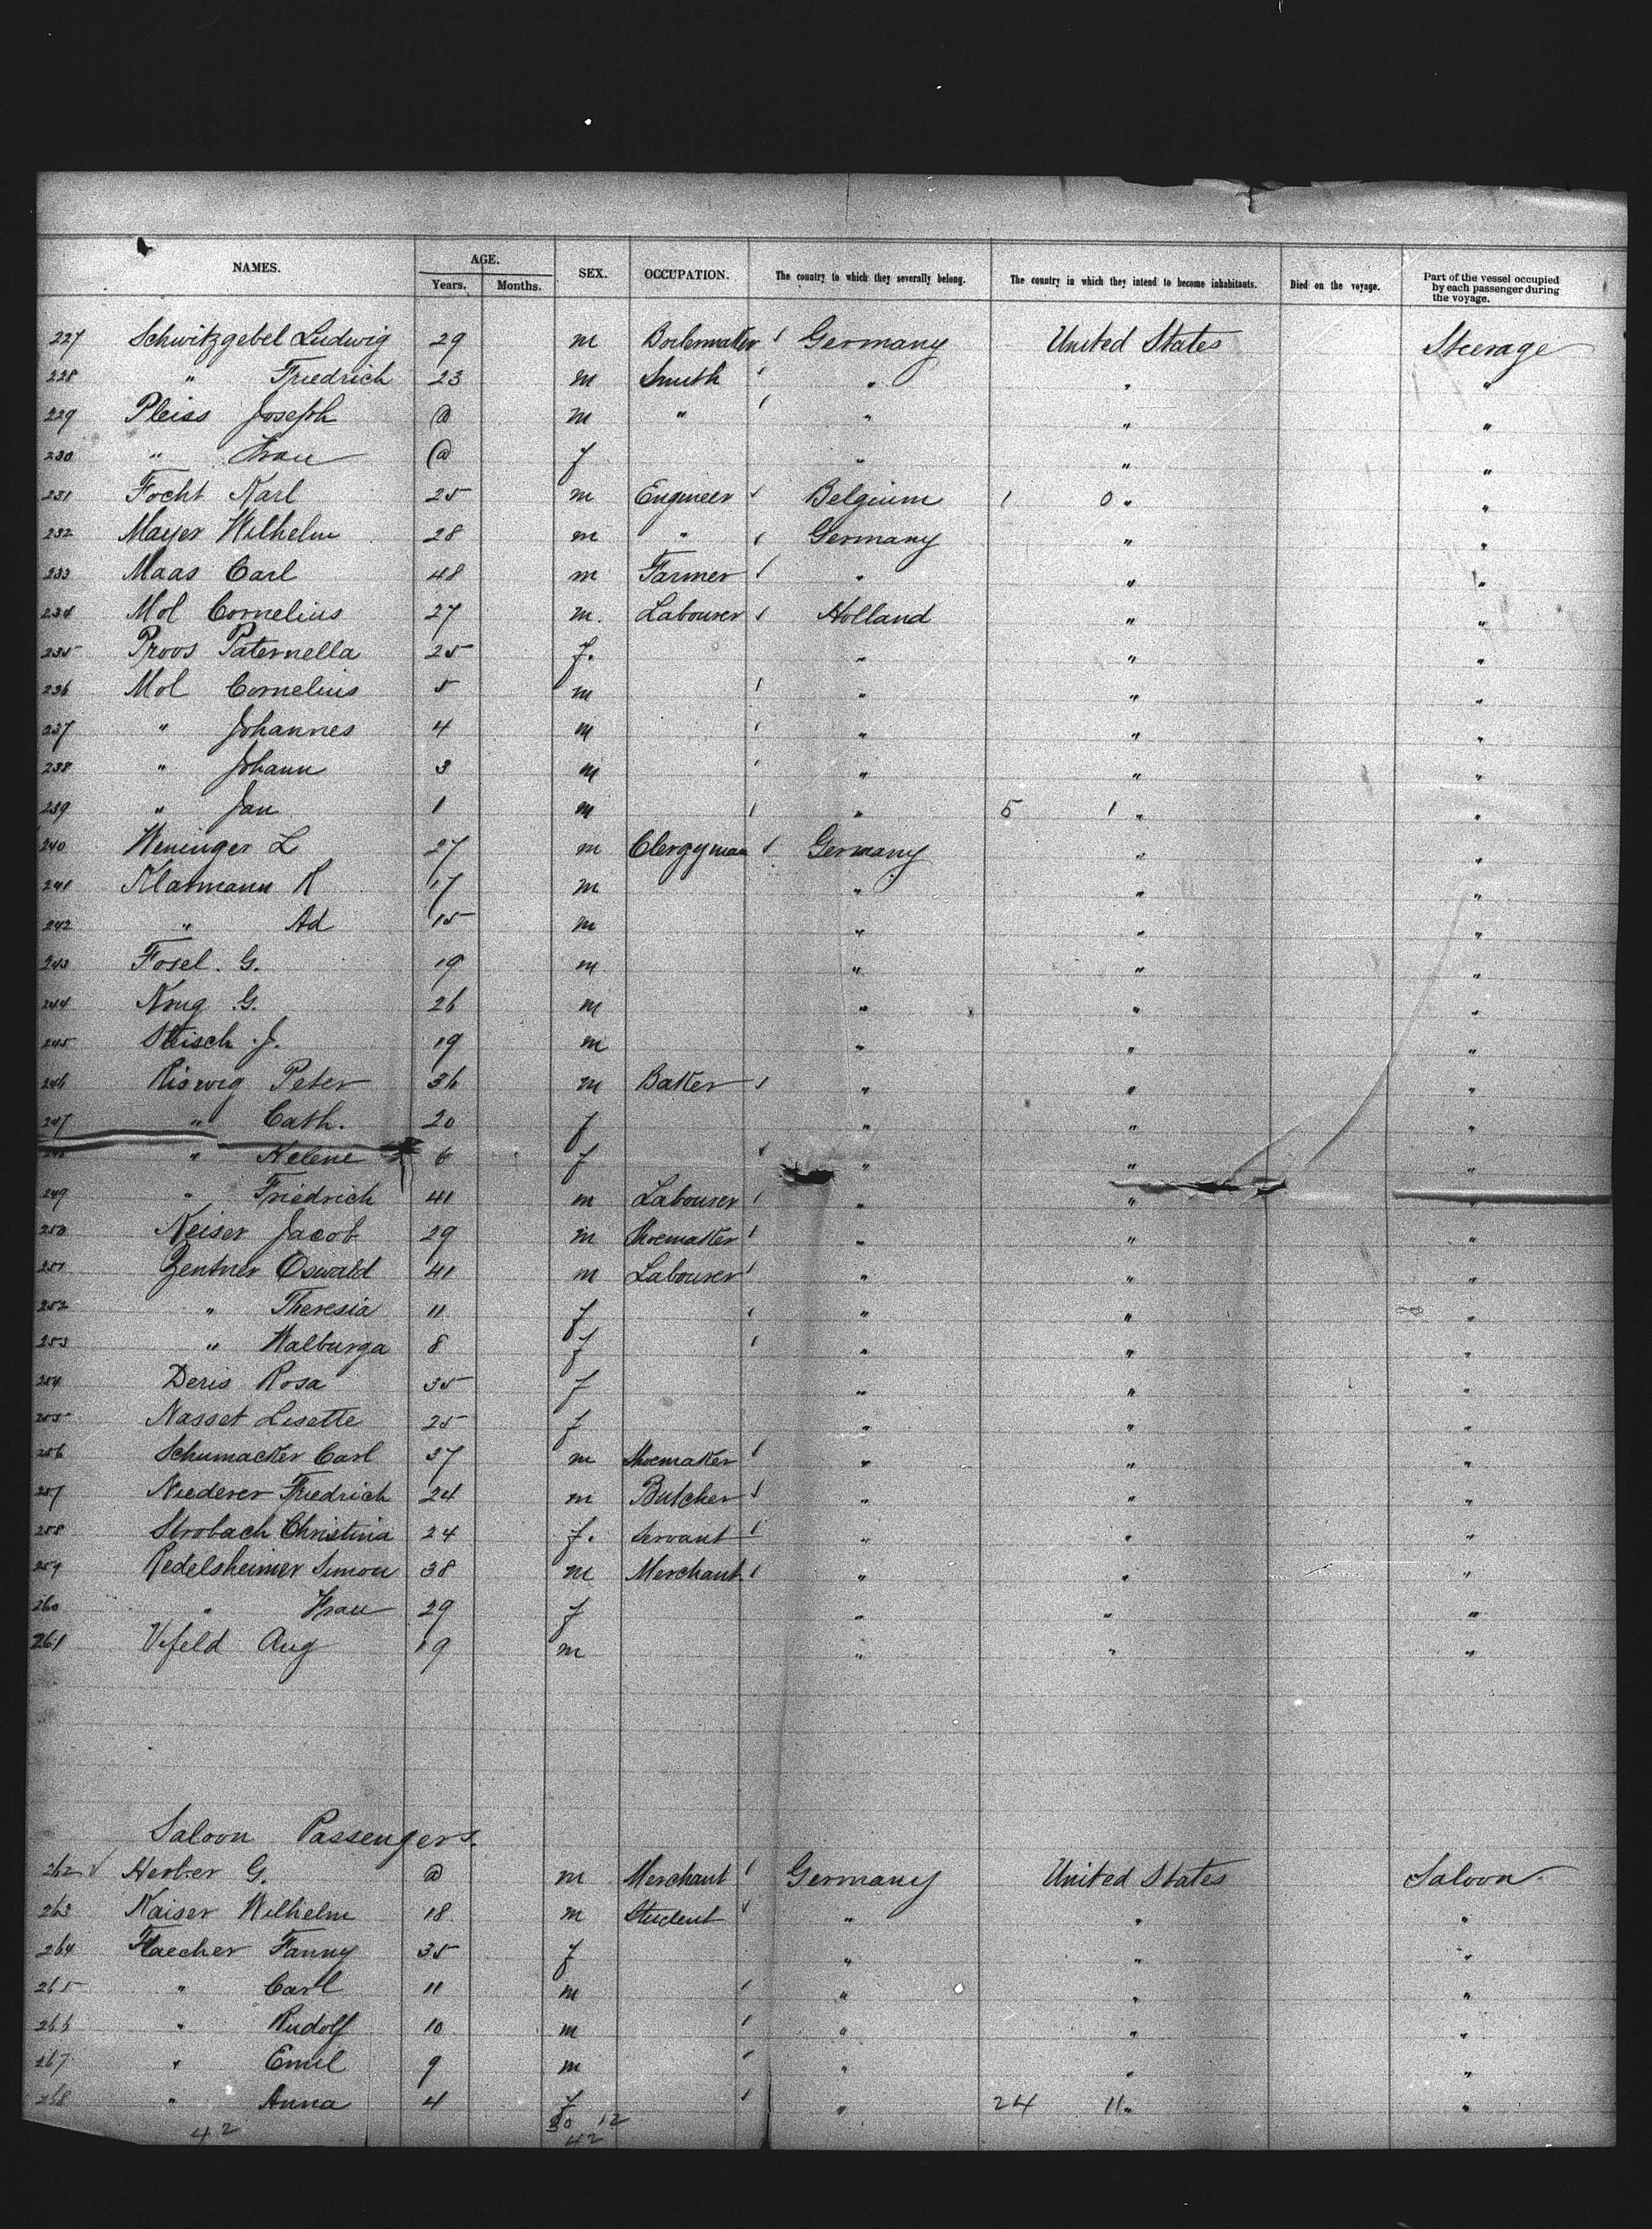 NAMES. AGE. SEX. OCCUPATION. The country to which they severally belong. The country in which they intend to become inhabitants. Died on the voyage. Part of the vessel occupied by each passenger during the voyage.
Years. Months.
227 Schwitzgebel Ludwig 29 m Boilermaker Germany United States Steerage
228 " Friedrich 23 m Smith " " "
229 Pleiss Joseph @ m " " " "
230 " Frau @ f " " "
231 Focht Karl 25 m Engineer Belgium 1 0 " "
232 Mayer Wilhelm 28 m " Germany " "
233 Maas Carl 48 m Farmer " " "
234 Mol Cornelius 27 m. Labourer Holland " "
235 Proos Paternella 25 f. " " "
236 Mol Cornelius 5 m " " "
237 " Johannes 4 m " " "
238 " Johann 3 m " " "
239 " Jan 1 m " 5 1 " "
240 Weninger L 27 m Clergyman Germany " "
241 Klarmann K 17 m " " "
242 " Ad 15 m " " "
243 Fosel. G. 19 m " " "
244 Krug G. 26 m " " "
245 J. 19 m " " "
246 Riswig Peter 36 m Baker " " "
247 " Cath. 20 f " " "
248 " Helene 6 f " " "
249 " Friedrich 41 m Labourer " " "
250 Keiser Jacob 29 m Shoemaker " " "
251 Zentner Oswald 41 m Labourer " " "
252 " Theresia 11 f " " "
253 " Walburga 8 f " " "
254 Deris Rosa 35 f " " "
255 Nasset Lisette 25 f " " "
256 Schumacker Carl 37 m Shoemaker " " "
257 Niederer Friedrich 24 m Butcher " " "
258 Strobach Christina 24 f. Servant " " "
259 Redelsheimer Simon 38 m Merchant " " "
260 " Frau 29 f " " "
261 Ufeld Aug 19 m " " "
Saloon Passengers.
262 Herber G. @ m Merchant Germany United States Saloon
263 Kaiser Wilhelm 18 m Student " " "
264 Flaecher Fanny 35 f " " "
265 " Carl 11 m " " "
266 " Rudolf 10 m " " "
267 " Emil 9 m " " "
268 " Anna 4 f " 24 11 " "
42 30 12
42